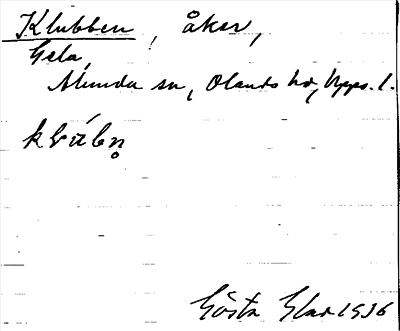 Klubben, åker,
Gela,
Alunda sn, Olands hd, Upps. l.
Gösta Elas 1936